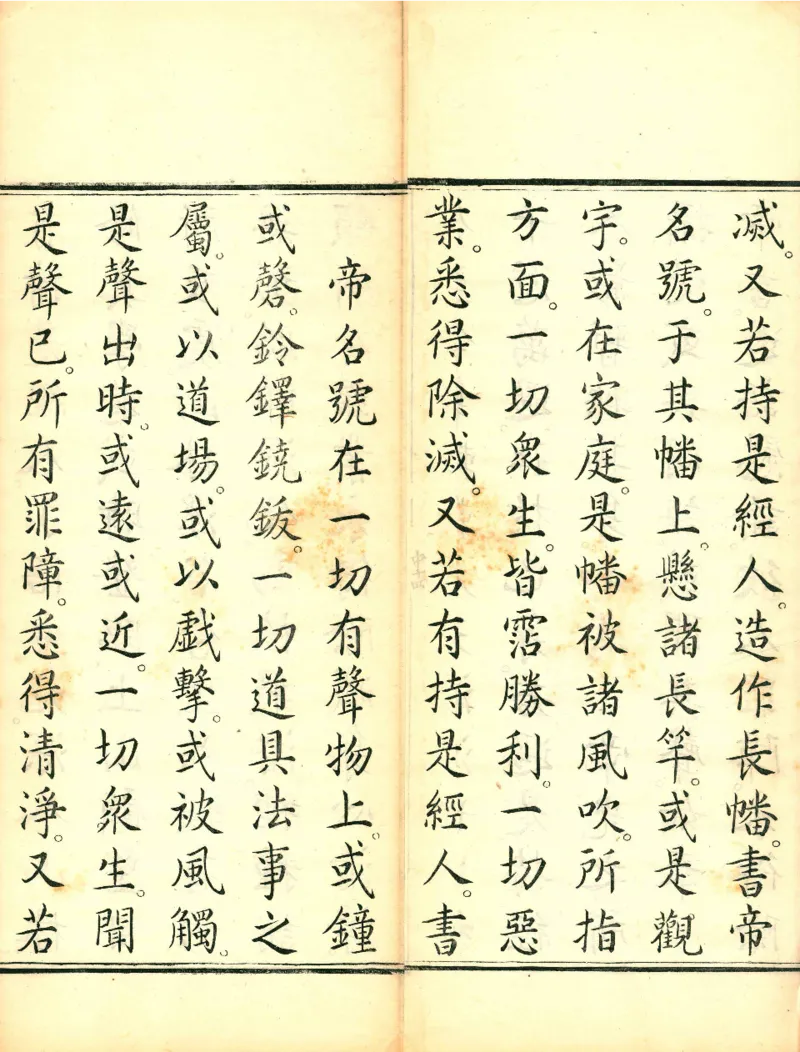 滅。又若持是經人。造作長幡。書帝
名號。于其幡上。懸諸長竿。或是觀
宇。或在家庭。是幡被諸風吹。所指
方面。一切衆生。皆霑勝利。一切惡
業。悉得除滅。又若有持是經人。書
帝名號在一切有聲物上。或鐘
或磬。鈴鐸鐃鈸。一切道具法事之
屬。或以道場。或以戲擊。或被風觸。
是聲出時。或遠或近。一切衆生。聞
是聲已。所有罪障。悉得清淨。又若